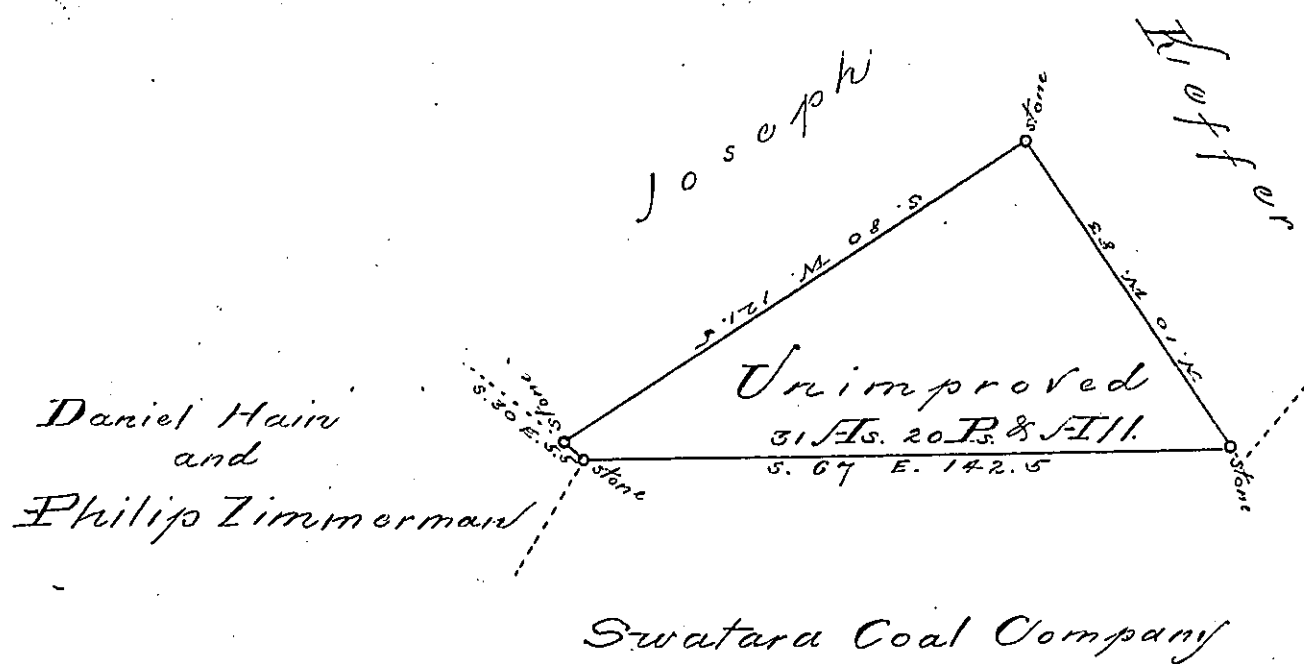 Joseph Kieffer
stone
S. 80 W. 121.5
N. 10 W. 83
Unimproved
31 As. 20 Ps. & All.
S. 67 E. 142.5
stone
S. 30 E. 5.5
stone
stone
Daniel Hain
and
Philip Zimmerman
Swatara Coal Company